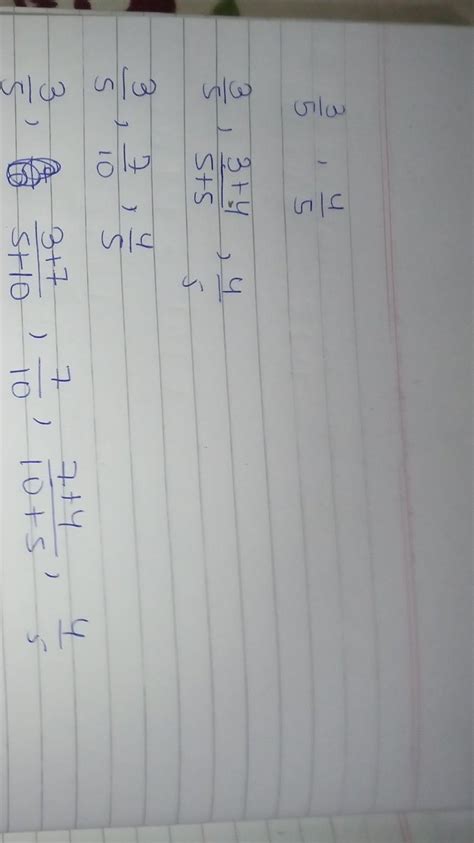 3/5 , 4/5
3/5 , 3+4/5+5 , 4/5
3/5 , 7/10 , 4/5
3/5 , 3+7/5+10 , 7/10 , 7+4/10+5 , 4/5